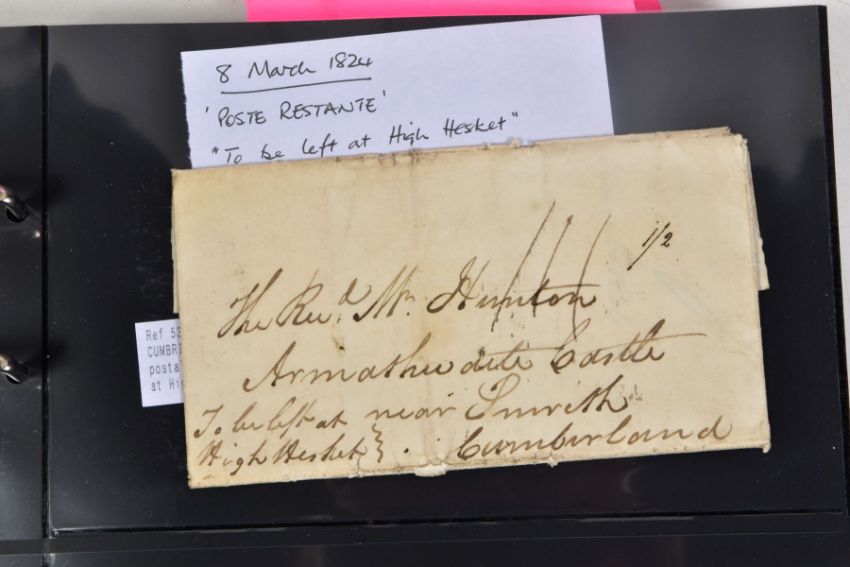 8 March 1824
'POSTE RESTANTE'
"To be left at High Hesket"
1/2
The Revd. Mr. Hunton
Armathwaite Castle
near Penrith
Cumberland
To be left at
High Hesket
Ref 53
CUMBRI
posta
at Hi